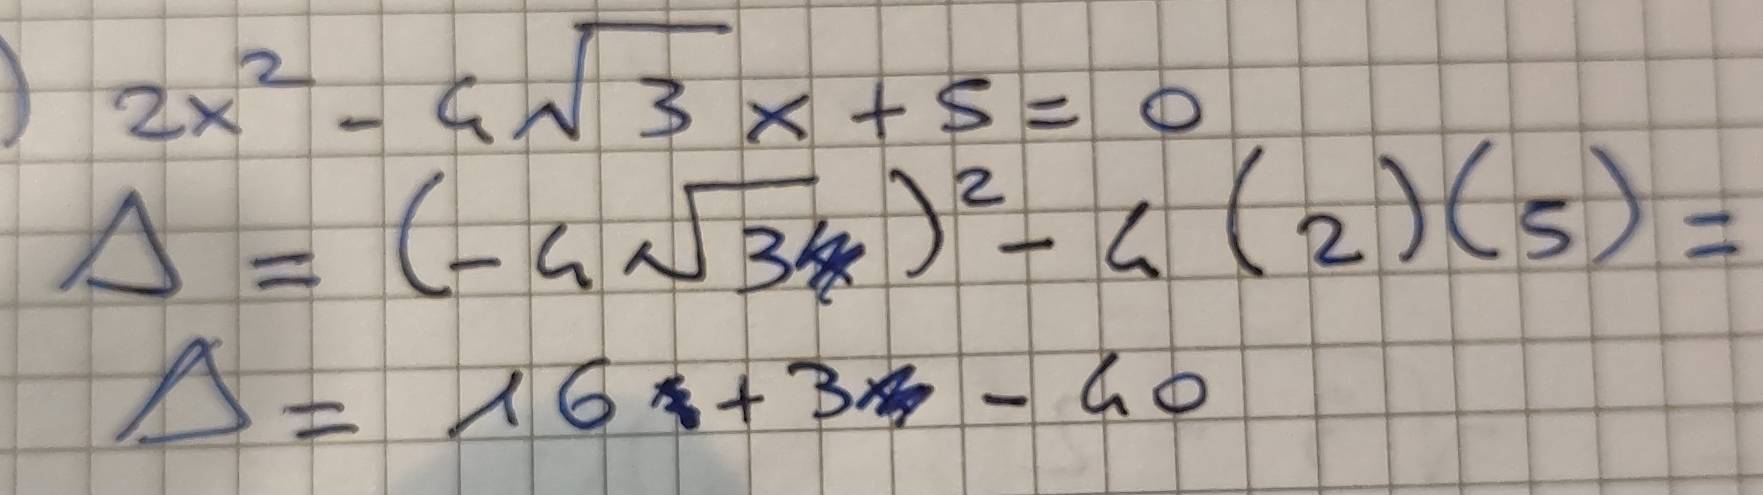 ) 2x² - 4√3 x + 5 = 0
Δ = (-4√3)² - 4 (2)(5) =
Δ = 16 + 3 - 40